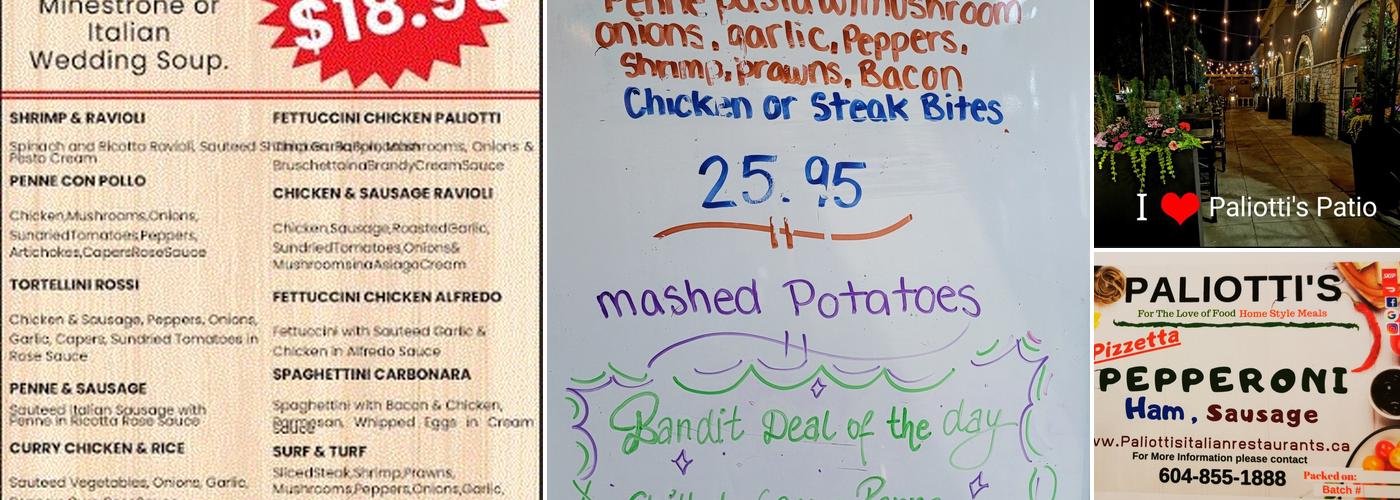 Minestrone or
Italian
Wedding Soup.
SHRIMP & RAVIOLI
Spinach and Ricotta Ravioli, Sauteed
Pesto Cream
PENNE CON POLLO
Chicken,Mushrooms,Onions,
SundriedTomatoes,Peppers,
Artichokes,CapersRoseSauce
TORTELLINI ROSSI
Chicken & Sausage, Peppers, Onions,
Garlic, Capers, Sundried Tomatoes in
Rose Sauce
PENNE & SAUSAGE
Sauteed Italian Sausage with
Penne in Ricotta Rose Sauce
CURRY CHICKEN & RICE
Sauteed Vegetables, Onions, Garlic,
FETTUCCINI CHICKEN PALIOTTI
Onions &
BruschettainaBrandyCreamSauce
CHICKEN & SAUSAGE RAVIOLI
Chicken,Sausage,RoastedGarlic,
SundriedTomatoes,Onions&
MushroomsinaAsiagoCream
FETTUCCINI CHICKEN ALFREDO
Fettuccini with Sauteed Garlic &
Chicken in Alfredo Sauce
SPAGHETTINI CARBONARA
Spaghettini with Bacon & Chicken,
Whipped Eggs in Cream
SURF & TURF
SlicedSteak,Shrimp,Prawns,
Mushrooms,Peppers,Onions,Garlic,
Penne pasta w/mushroom
onions, garlic, Peppers,
Shrimp, prawns, Bacon
Chicken or Steak Bites
25.95
mashed Potatoes
Bandit Deal of the day
I ❤ Paliotti's Patio
PALIOTTI'S
For The Love of Food Home Style Meals
Pizzetta
PEPPERONI
Ham, Sausage
www.Paliottisitalianrestaurants.ca
For More Information please contact
604-855-1888
Packed on:
Batch #